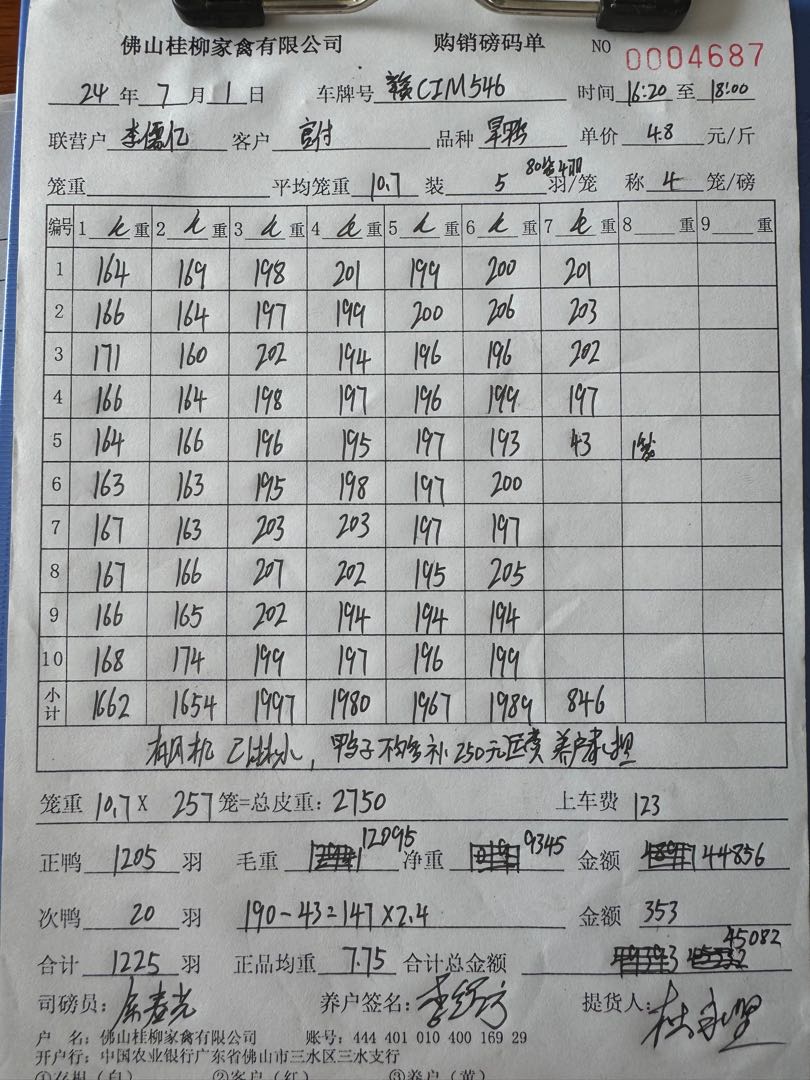 佛山桂柳家禽有限公司 购销磅码单 NO 0004687
24 年 7 月 1 日 车牌号 赣CIM546 时间 16:20 至 18:00
联营户 李儒亿 客户 品种 单价 4.8 元/斤
笼重 平均笼重 10.7 装 5 80笼4羽 羽/笼 称 4 笼/磅
编号 1 重 2 重 3 重 4 重 5 重 6 重 7 重 8 重 9 重
1 164 169 198 201 199 200 201
2 166 164 197 199 200 206 203
3 171 160 202 194 196 196 202
4 166 164 198 197 196 199 197
5 164 166 196 195 197 193 43 1笼
6 163 163 195 198 197 200
7 167 163 203 203 197 197
8 167 166 207 202 195 205
9 166 165 202 194 194 194
10 168 174 199 197 196 199
小计 1662 1654 1997 1980 1967 1989 846
有风机 已抹水, 鸭子不均匀补250元运费 养户承担
笼重 10.7 X 257 笼=总皮重: 2750 上车费 123
正鸭 1205 羽 毛重 12095 净重 9345 金额 44856
次鸭 20 羽 190-43=147×2.4 金额 353
合计 1225 羽 正品均重 7.75 合计总金额 45082
司磅员: 养户签名: 提货人:
户 名: 佛山桂柳家禽有限公司 账号: 444 401 010 400 169 29
开户行: 中国农业银行广东省佛山市三水区三水支行
①存根(白) ②客户(红) ③养户(黄)